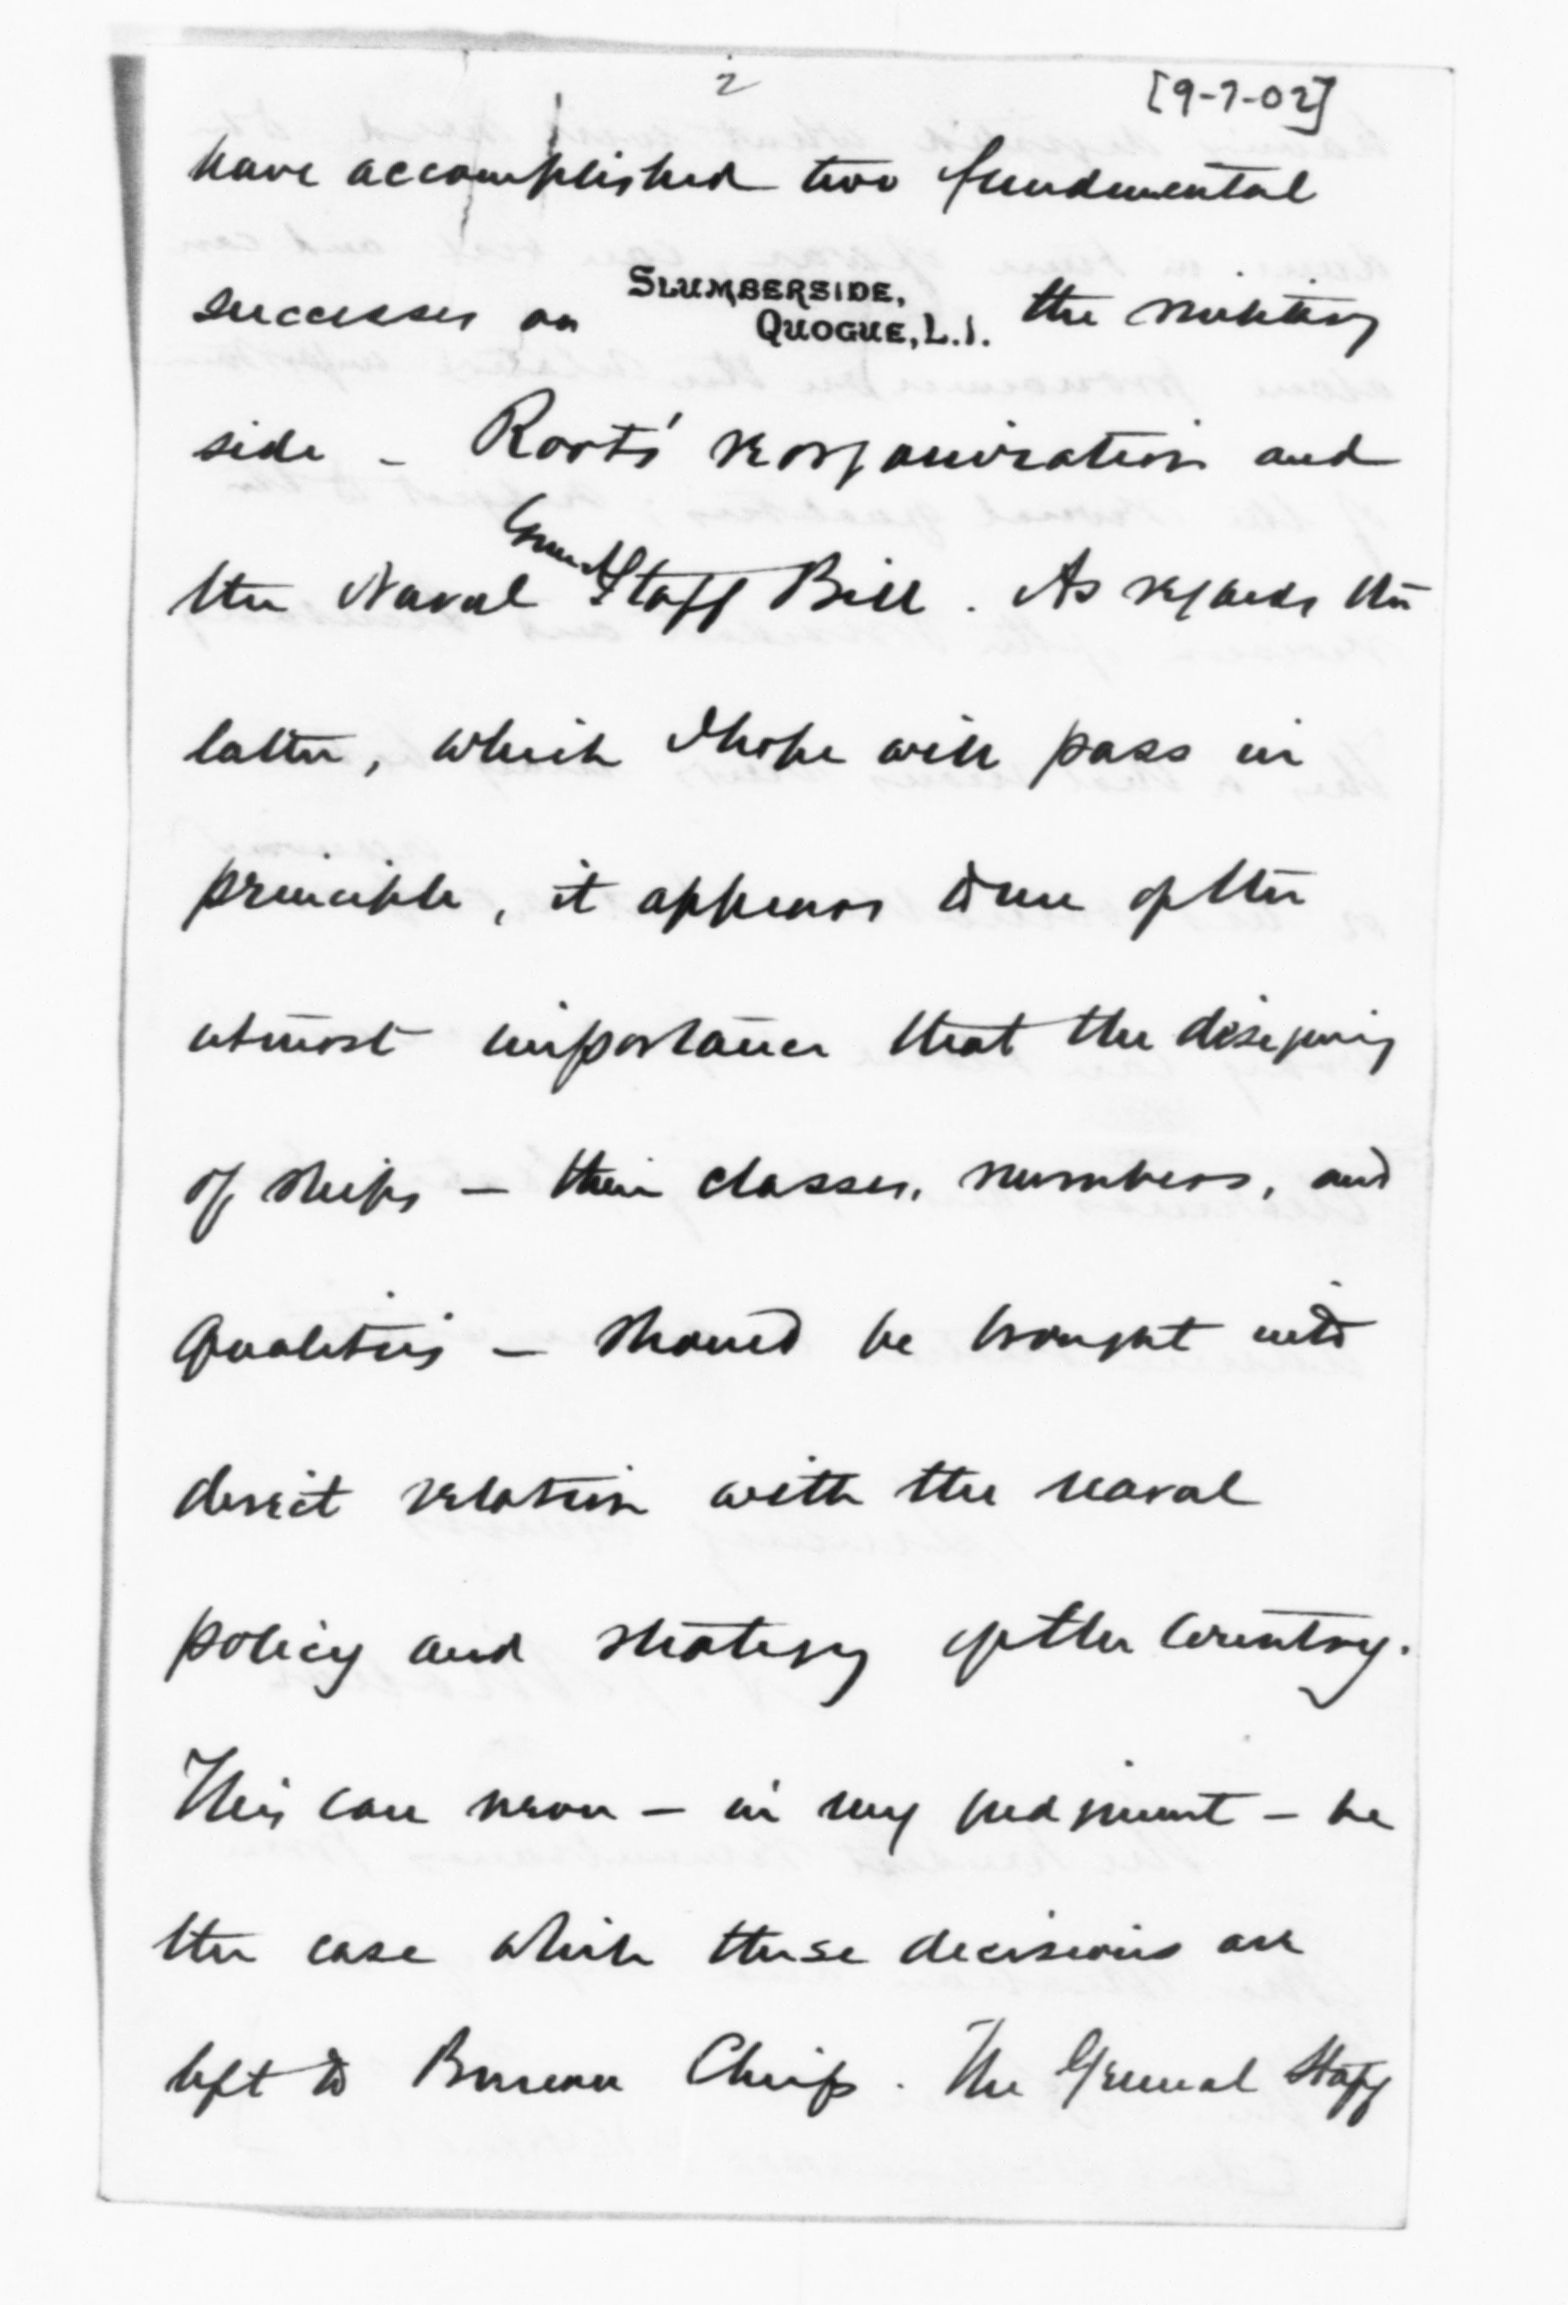 2
[9-7-02]
have accomplished two fundmental
successes on SLUMBERSIDE, QUOGUE, L.I. the military
side - Root's reorganization and
the Naval General Staff Bill. As regards the
latter, which I hope will pass in
principle, it appears to me of the
utmost importance that the designing
of ships - their classes, numbers, and
qualities - should be brought into
direct relation with the naval
policy and strategy of the Country.
This can never - in my judgment - be
the case which these decisions are
left to Bureau Chiefs. The General Staff